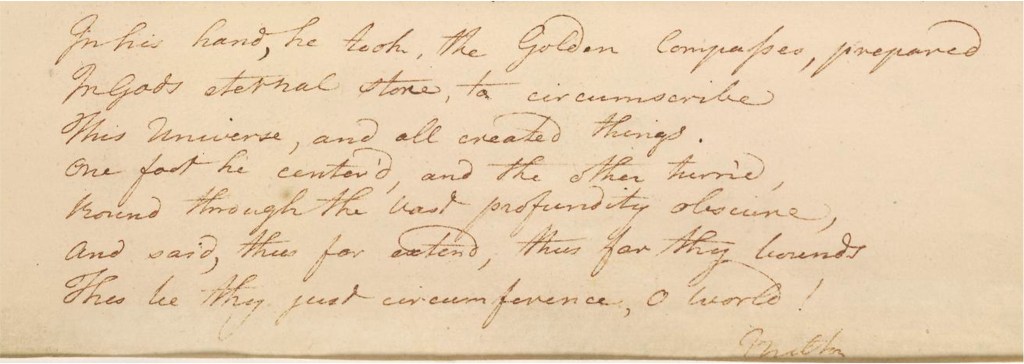 In his hand, he took, the Golden Compaſses, prepared
In Gods eternal store, to circumscribe
This Universe, and all created things.
One foot he center'd, and the other turn'd,
Round through the vast profundity obscure,
And said, thus far extend, thus far thy bounds
This be thy just circumference, O World!
Milton